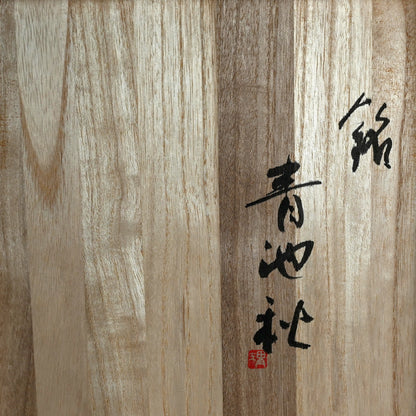 銘
青池秋